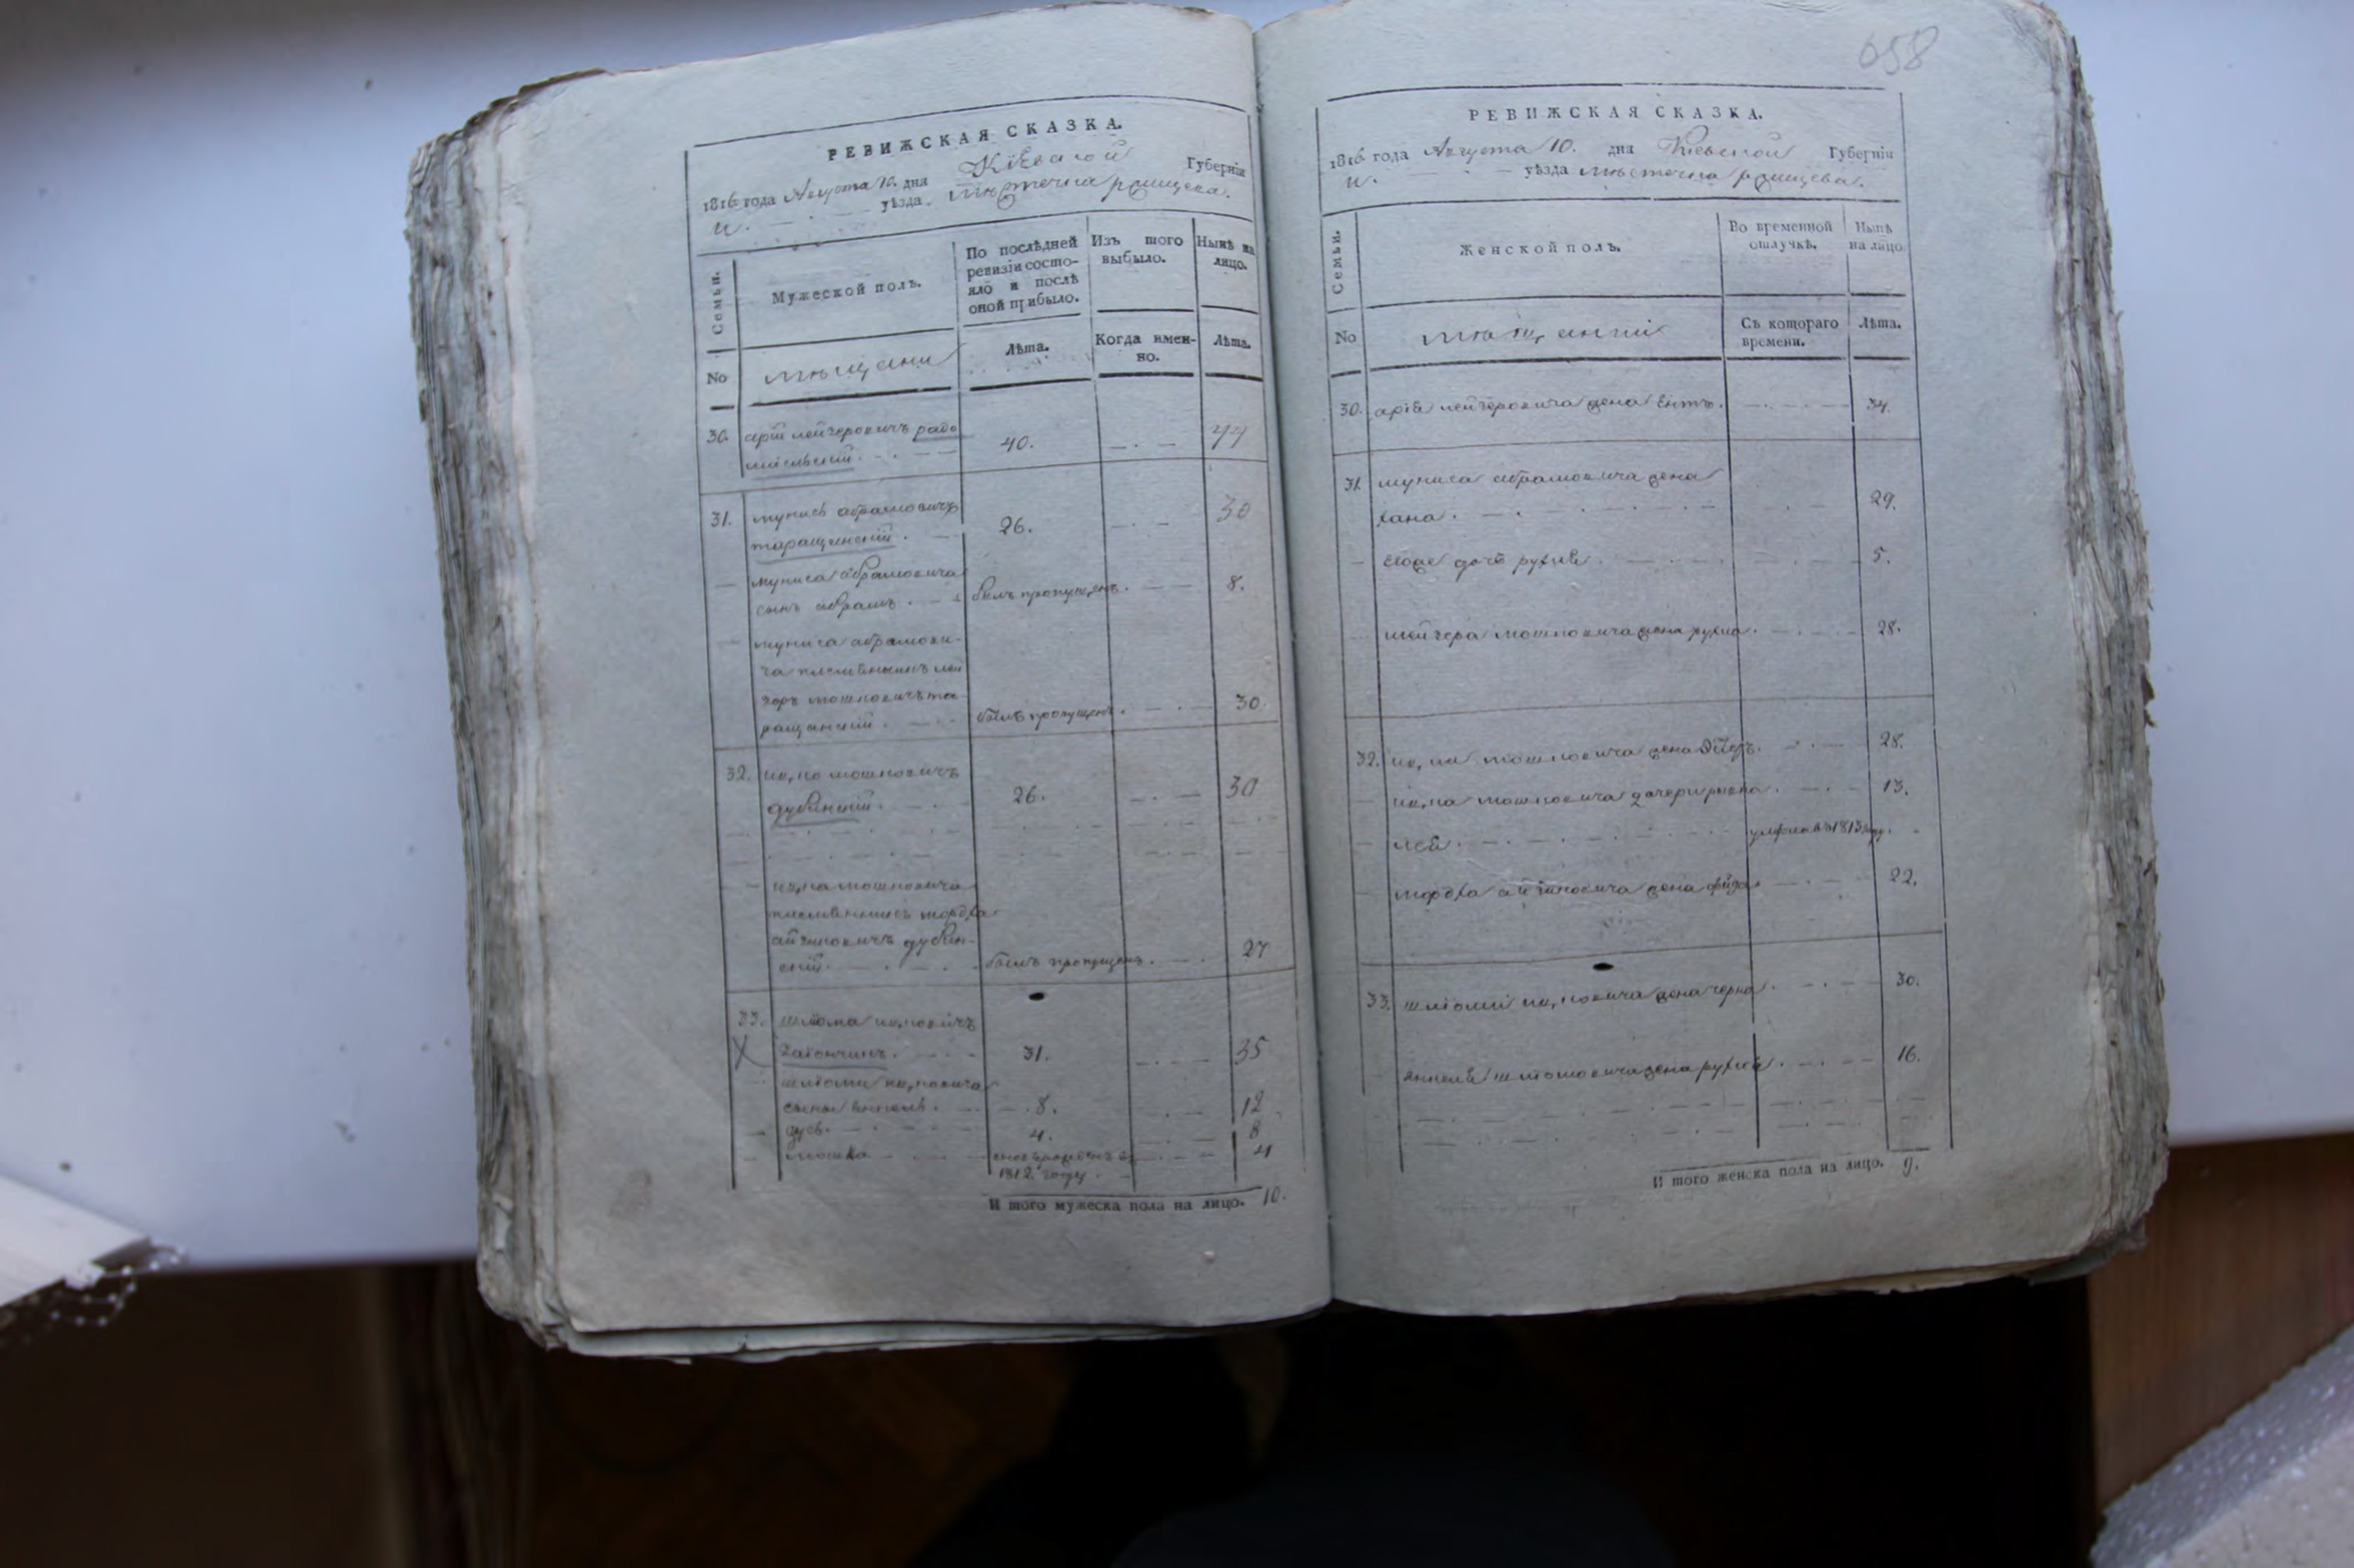 РЕВИЖСКАЯ СКАЗКА.
1816 года Августа 10. дня Кіевской Губерніи
и. уѣзда. мѣстечка ржищева.
Семьи.
Мужеской полъ.
По послѣдней
ревизіи состо-
яло и послѣ
оной прибыло.
Изъ того
выбыло.
Нынѣ на
лицо.
No
мѣщани
Лѣта.
Когда имен-
но.
Лѣта.
30. арій лейзеровичъ радо
мисльскій. 40. 44
31. мунисъ абрамовичъ
таращанскій. 26. 30
муниса абрамовича
сынъ абрамъ. былъ пропущенъ. 8.
муниса абрамови-
ча племѣнникъ лей
зоръ мошковичъ та
ращанскій. былъ пропущенъ. 30
32. мошковичъ
дубинскій. 26. 30
мошковича
племѣнникъ мордха
айзиковичъ дубин-
скій. былъ пропущенъ. 27
33. шлиома ицковичъ
31. 35
шлиоми ицковича
сыны янкель. 8. 12
дувъ. 4. 8
мошко 4
1812 году.
И того мужеска пола на лицо. 10.
658
РЕВИЖСКАЯ СКАЗКА.
1816 года Августа 10. дня Кіевской Губерніи
и. уѣзда мѣстечка ржищева.
Семьи.
Женской полъ.
Во временной
отлучкѣ.
Нынѣ
на лицо
No
Съ котораго
времени.
Лѣта.
30. арія лейзеровича жена 34.
31. муниса абрамовича жена
хана. 29.
дочь рухля. 5.
лейзера мошковича жена рухла. 28.
32. мошковича жена 28.
мошковича дочери 13.
лея. 1813 году.
мордха айзиковича жена фейга 22.
33. шлиоми ицковича жена черна. 30.
янкеля шлиомовича жена рухля. 16.
И того женска пола на лицо. 9.